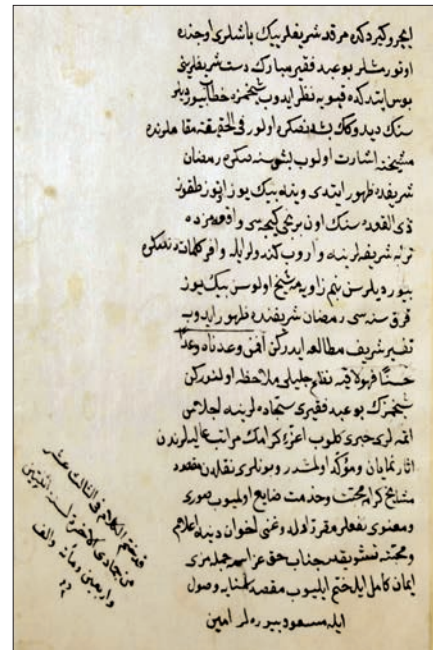 ایچرو کیردکده مرقد شریفلرینك باشلری اوجنده
اوتورمشلر بو عبد فقیر مبارك دست شریفلرینی
بوس ایتدکده قپویه نظر ایدوب شیخمزه خطابا بیوردیلر
سنك دیدوکك بش سنه دنصکره اولور فی الحقیقه مقاملرنده
مشیخته اشارت اولوب بش سنه صکره رمضان
شریفده ظهور ایتدی وینه بیك یوز اوتوز طقوز
ذی القعده سنك اون برنجی کیجه سی واقعه مزده
تربه شریفلرینه واروب کندولر ایله وافر کلماتدنصکره
بیوردیلر سن بنم زاویه مه شیخ اولوسن بیك یوز
قرق سنه سی رمضان شریفنده ظهور ایدوب
تفسیر شریف مطالعه ایدرکن افمن وعدناه وعدا
حسنا فهو لاقیه نظم جلیلی ملاحظه اولنورکن
شیخمزك بو عبد فقیری سجاده لرینه اجلاس
ایتمه لری خبری کلوب اعزه کرامك مراتب عالیه لرندن
اثار نمایان ومؤکد اولمشدر وبونلری نقلدن مقصود
مشایخ کرامه محبت وخدمت ضایع اولمیوب صوری
ومعنوی نفعلر مقرر اولدوغنی اخوان دینه اعلام
ومحبته تشویقدر جناب حق عز اسمه جمله مزی
ایمان کامل ایله ختم ایلیوب مقصد وصول
ایله مسعود بیوره لر امین
قد ختم الکلام فی الثالث عشر
من جمادی الاخرة لسنة اثنتین
واربعین ومائة والف